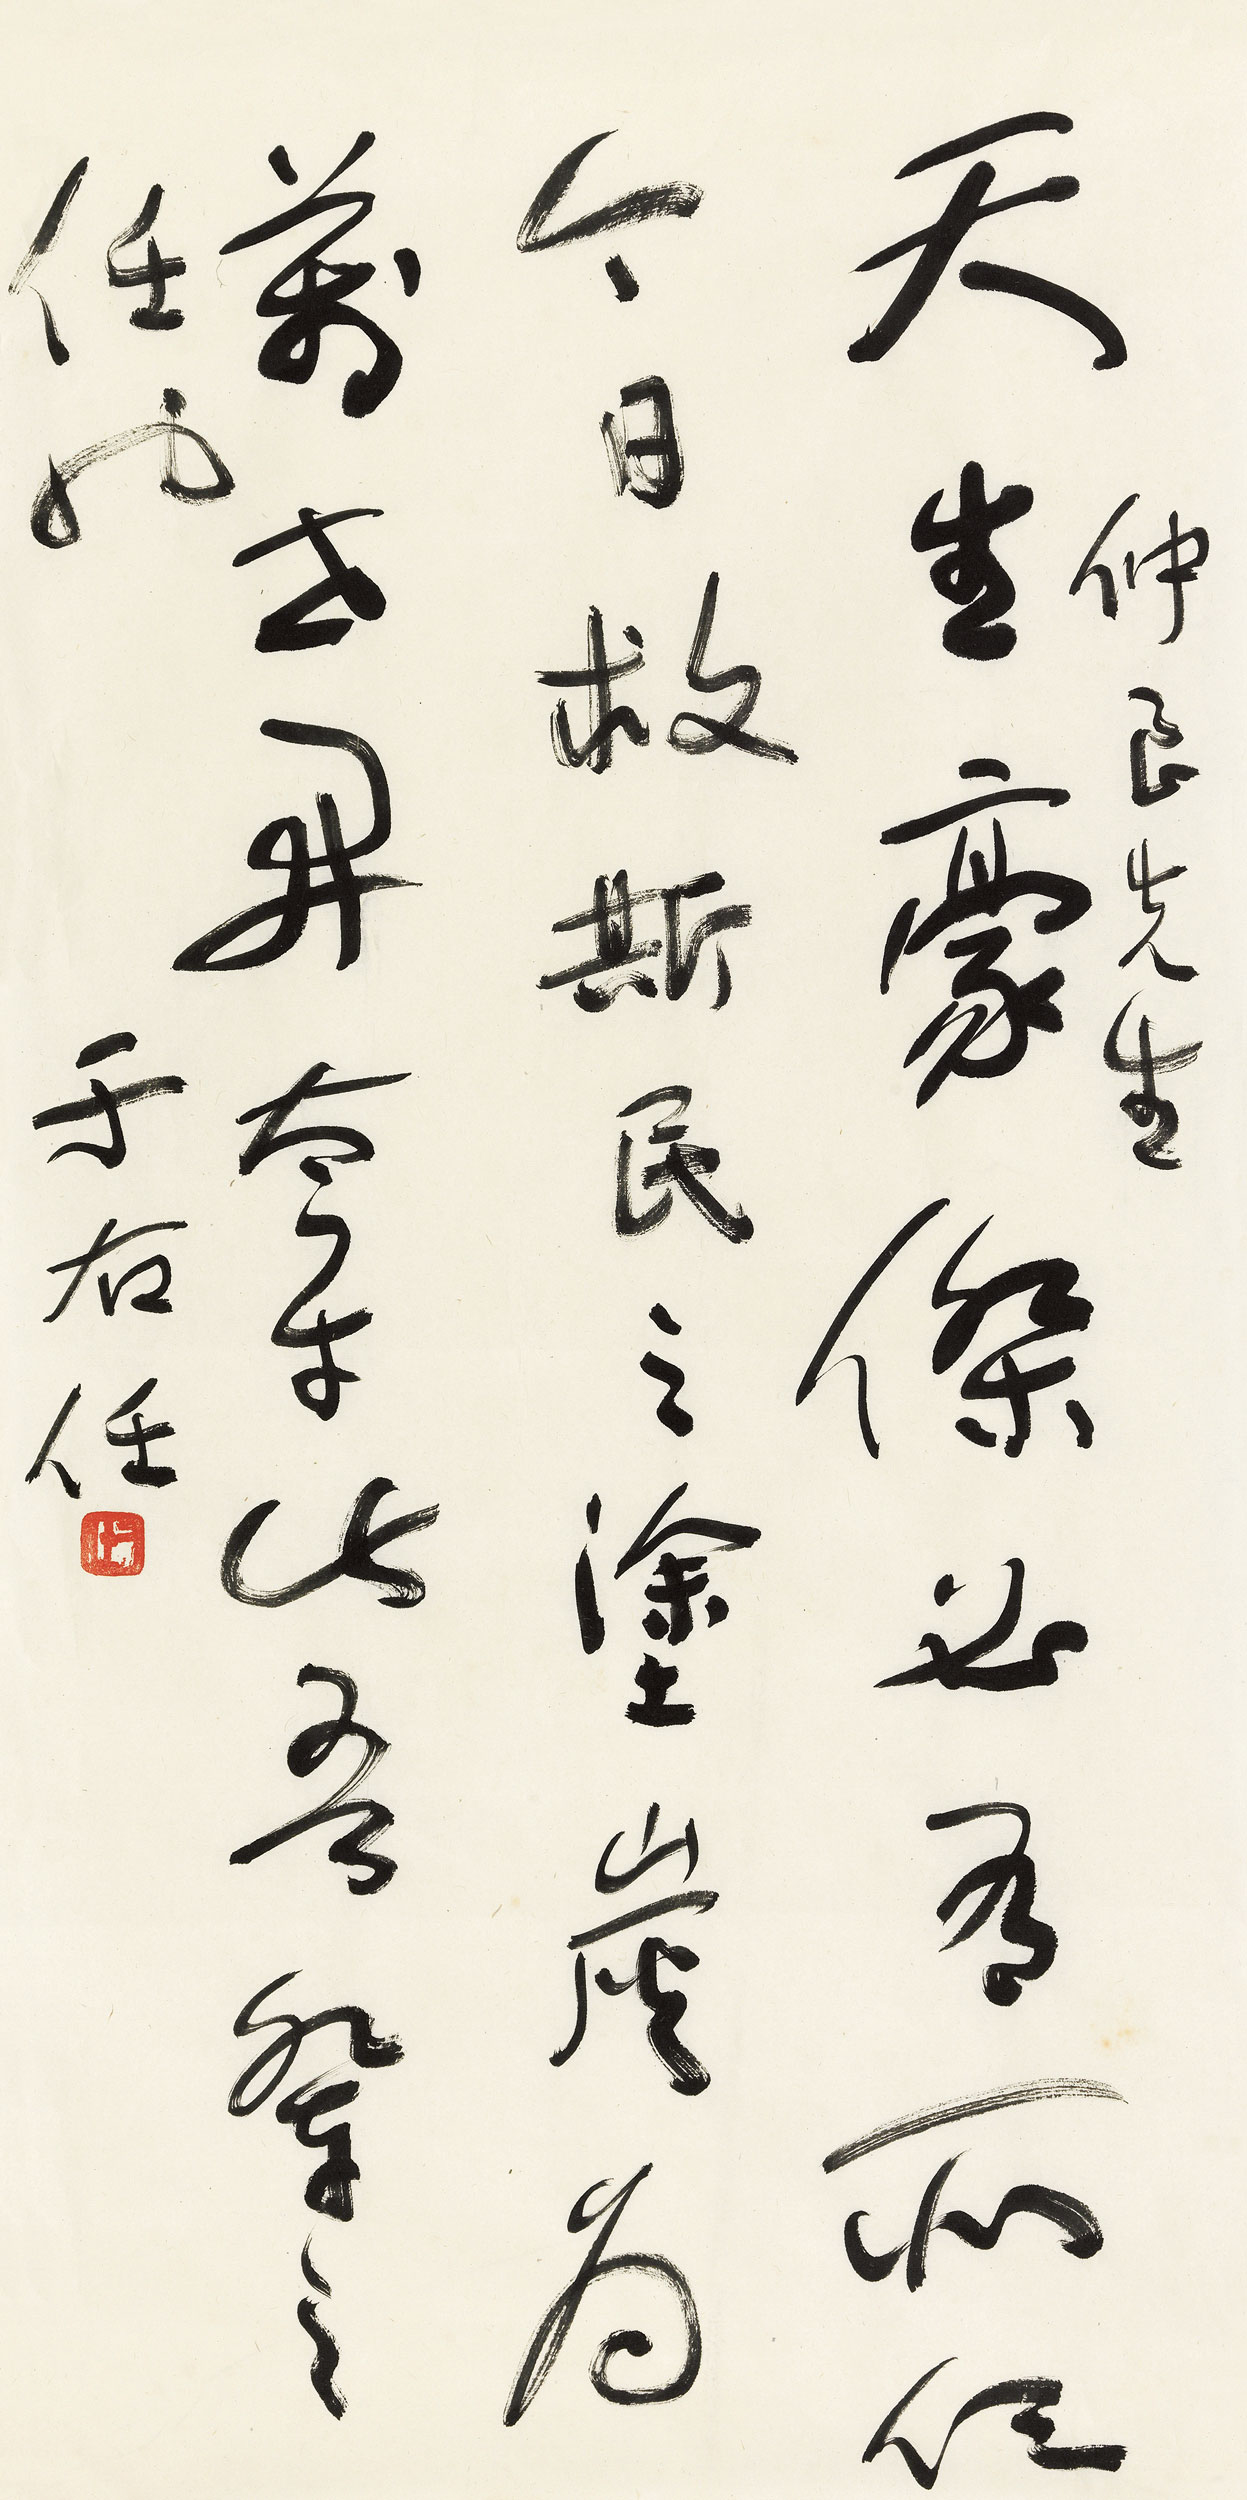 仲良先生
天生豪傑必有所任
今日救斯民之塗炭為
萬世開太平此吾輩之
任也
于右任